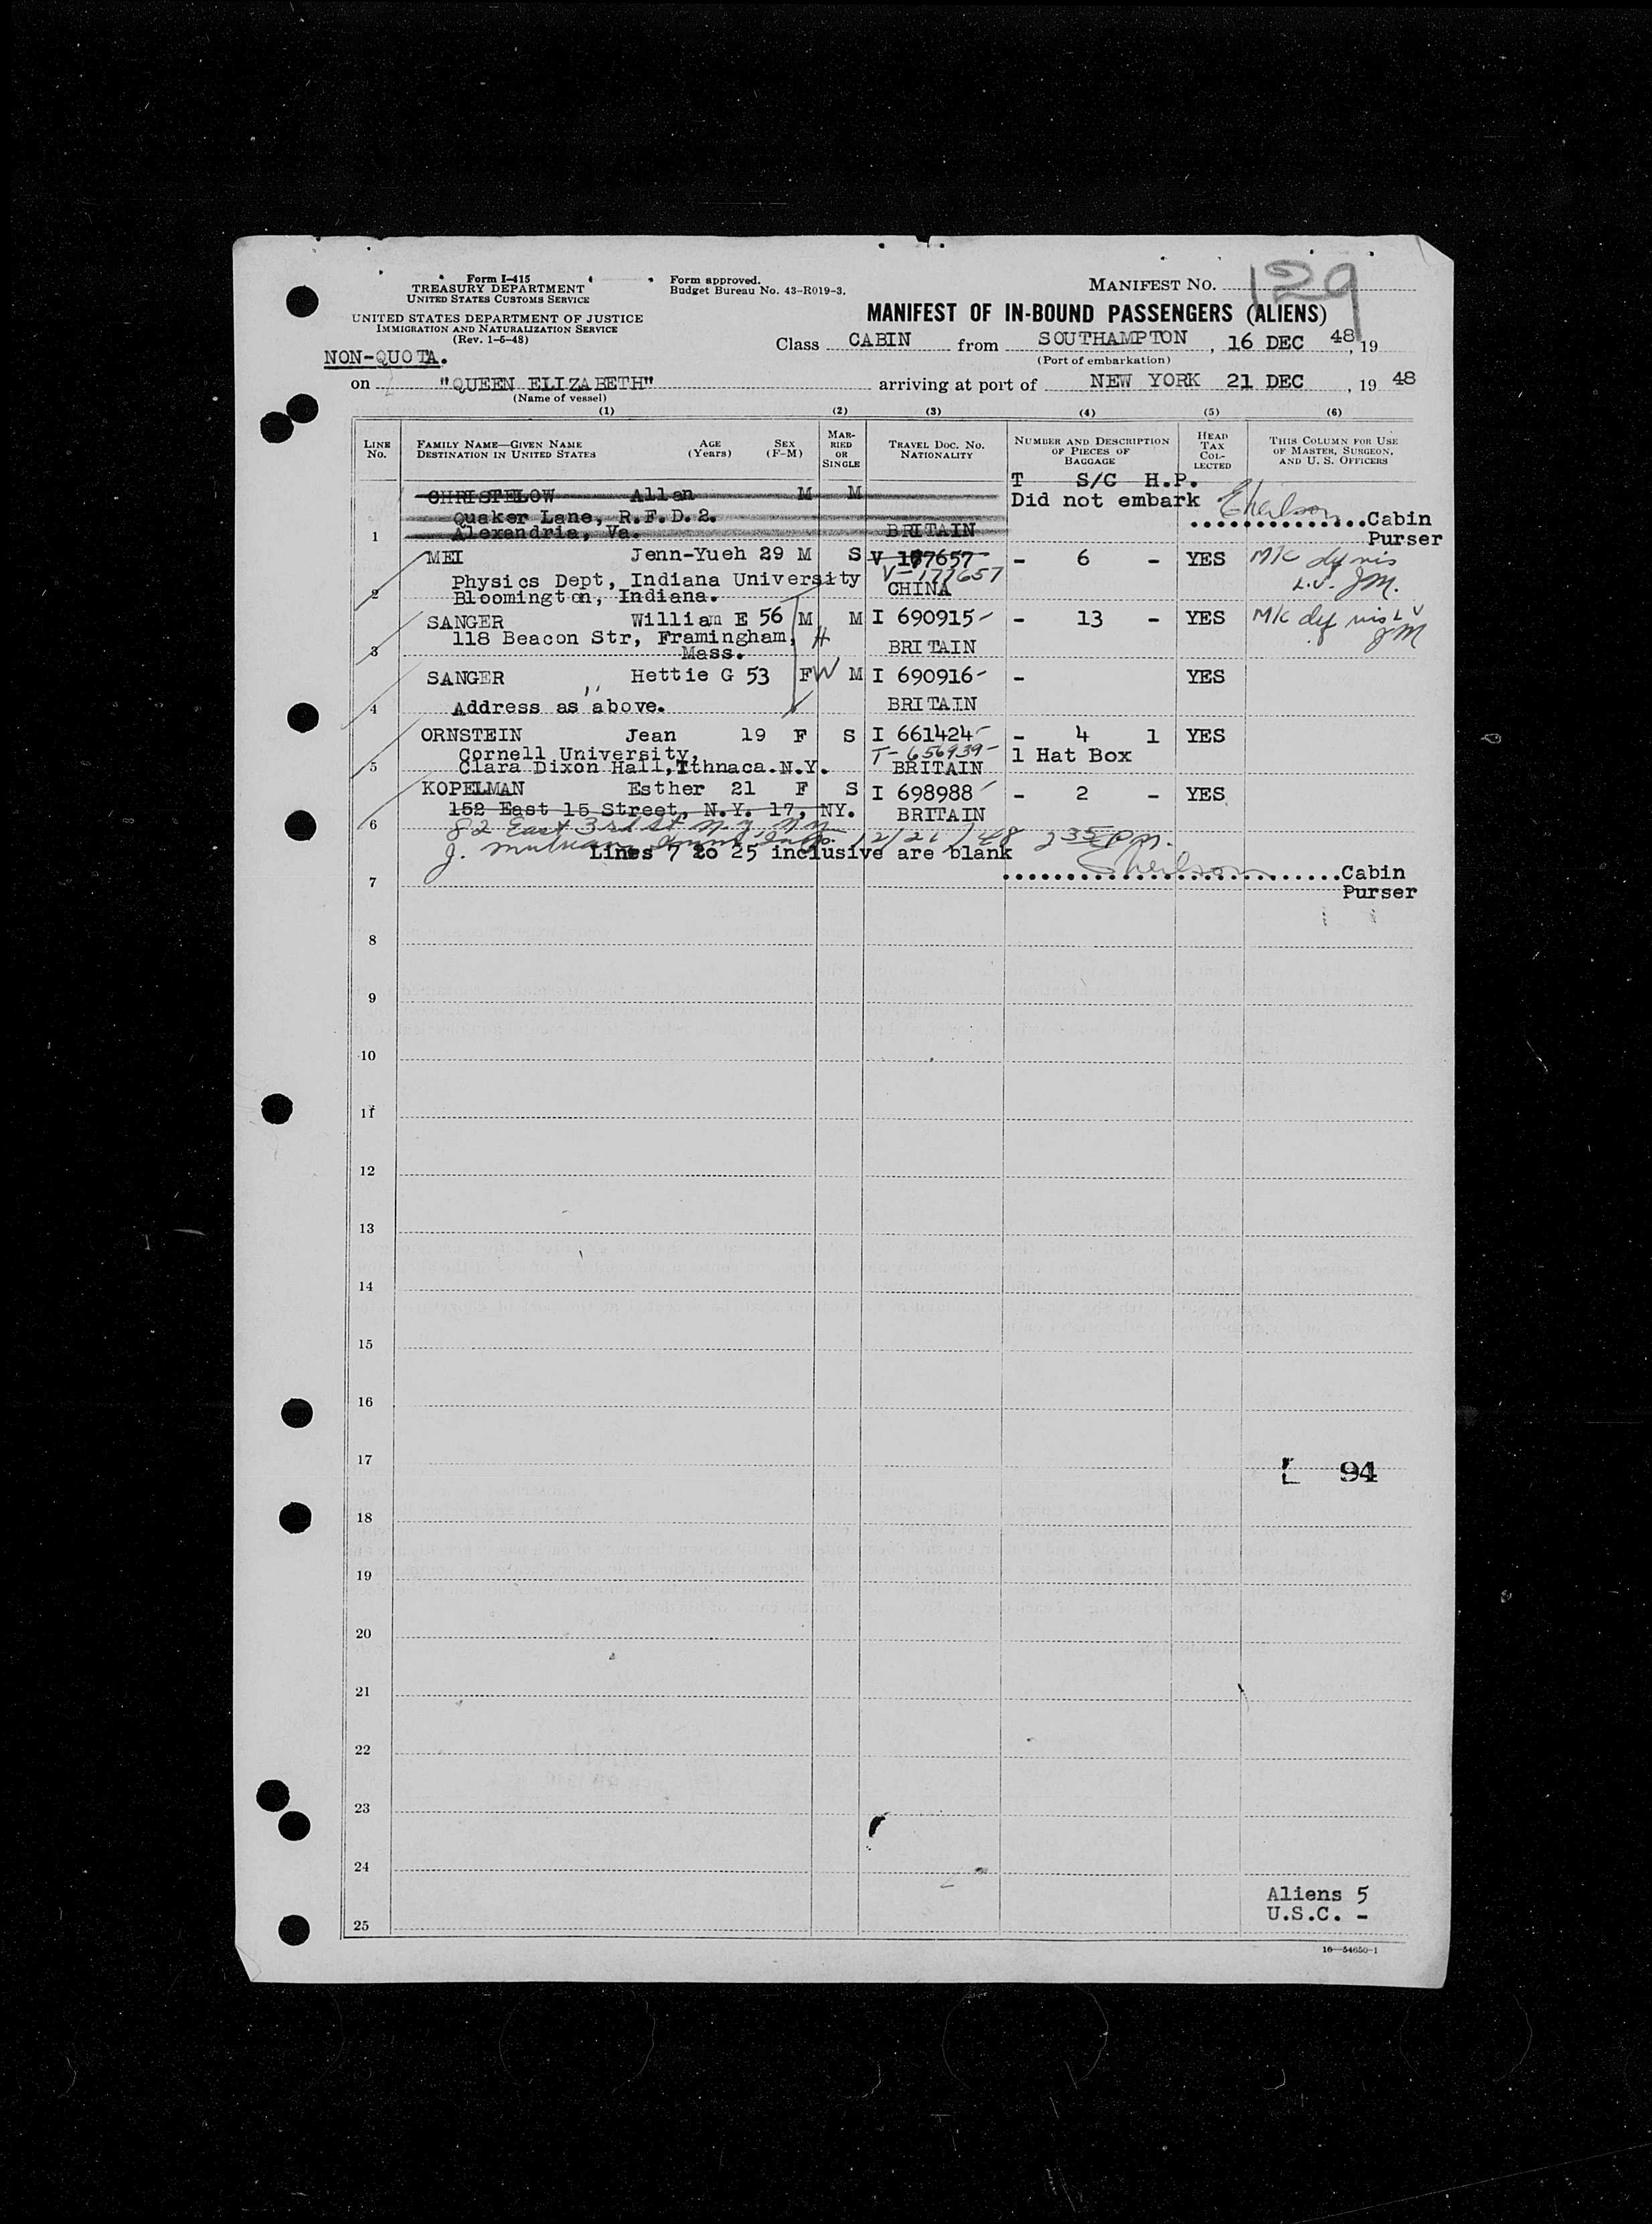 Form I-415
TREASURY DEPARTMENT
UNITED STATES CUSTOMS SERVICE
UNITED STATES DEPARTMENT OF JUSTICE
IMMIGRATION AND NATURALIZATION SERVICE
(Rev. 1-6-48)
Form approved.
Budget Bureau No. 43-R019-3.
MANIFEST NO. 129
MANIFEST OF IN-BOUND PASSENGERS (ALIENS)
NON-QUOTA.
Class CABIN from SOUTHAMPTON, 16 DEC 48, 19
(Port of embarkation)
on "QUEEN ELIZABETH" arriving at port of NEW YORK 21 DEC, 19 48
(Name of vessel)
(1) (2) (3) (4) (5) (6)
LINE No. FAMILY NAME—GIVEN NAME DESTINATION IN UNITED STATES AGE (Years) SEX (F-M) MARRIED OR SINGLE TRAVEL DOC. NO. NATIONALITY NUMBER AND DESCRIPTION OF PIECES OF BAGGAGE HEAD TAX COLLECTED THIS COLUMN FOR USE OF MASTER, SURGEON, AND U. S. OFFICERS
T S/C H.P.
CHRISTELOW Allan M M Did not embark
Quaker Lane, R.F.D.2.
1 Alexandria, Va. BRITAIN Cabin
Purser
MEI Jenn-Yueh 29 M S V 187657 - 6 - YES
V-177657
Physics Dept, Indiana University
2 Bloomington, Indiana. CHINA
SANGER William E 56 M M I 690915 - 13 - YES
118 Beacon Str, Framingham, H
3 Mass. BRITAIN
SANGER Hettie G 53 F W M I 690916 - YES
4 Address as above. BRITAIN
ORNSTEIN Jean 19 F S I 661424 - 4 1 YES
Cornell University, T-656939 1 Hat Box
5 Clara Dixon Hall,Ithnaca.N.Y. BRITAIN
KOPELMAN Esther 21 F S I 698988 - 2 - YES
152 East 15 Street, N.Y. 17, NY. BRITAIN
6 82 East 3rd St N.Y. N.Y.
12/21/48 235 PM.
Lines 7 to 25 inclusive are blank
7 Cabin
Purser
8
9
10
11
12
13
14
15
16
17
94
18
19
20
21
22
23
24
Aliens 5
U.S.C. -
25
16—54650-1